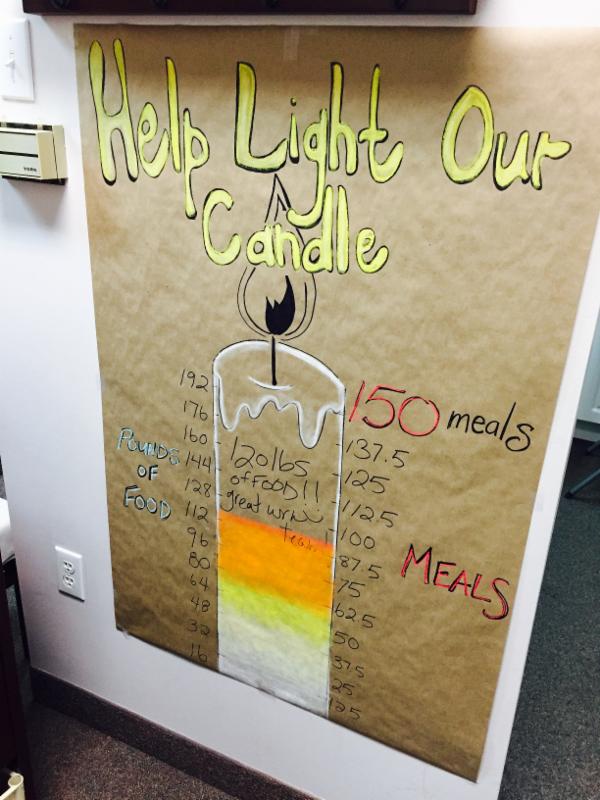 Help Light Our
Candle
192
176
160
144
128
112
96
80
64
48
32
16
POUNDS
OF
FOOD
120lbs
of FOOD!!
great
team!
150 meals
137.5
125
112.5
100
87.5
75
62.5
50
37.5
25
12.5
MEALS